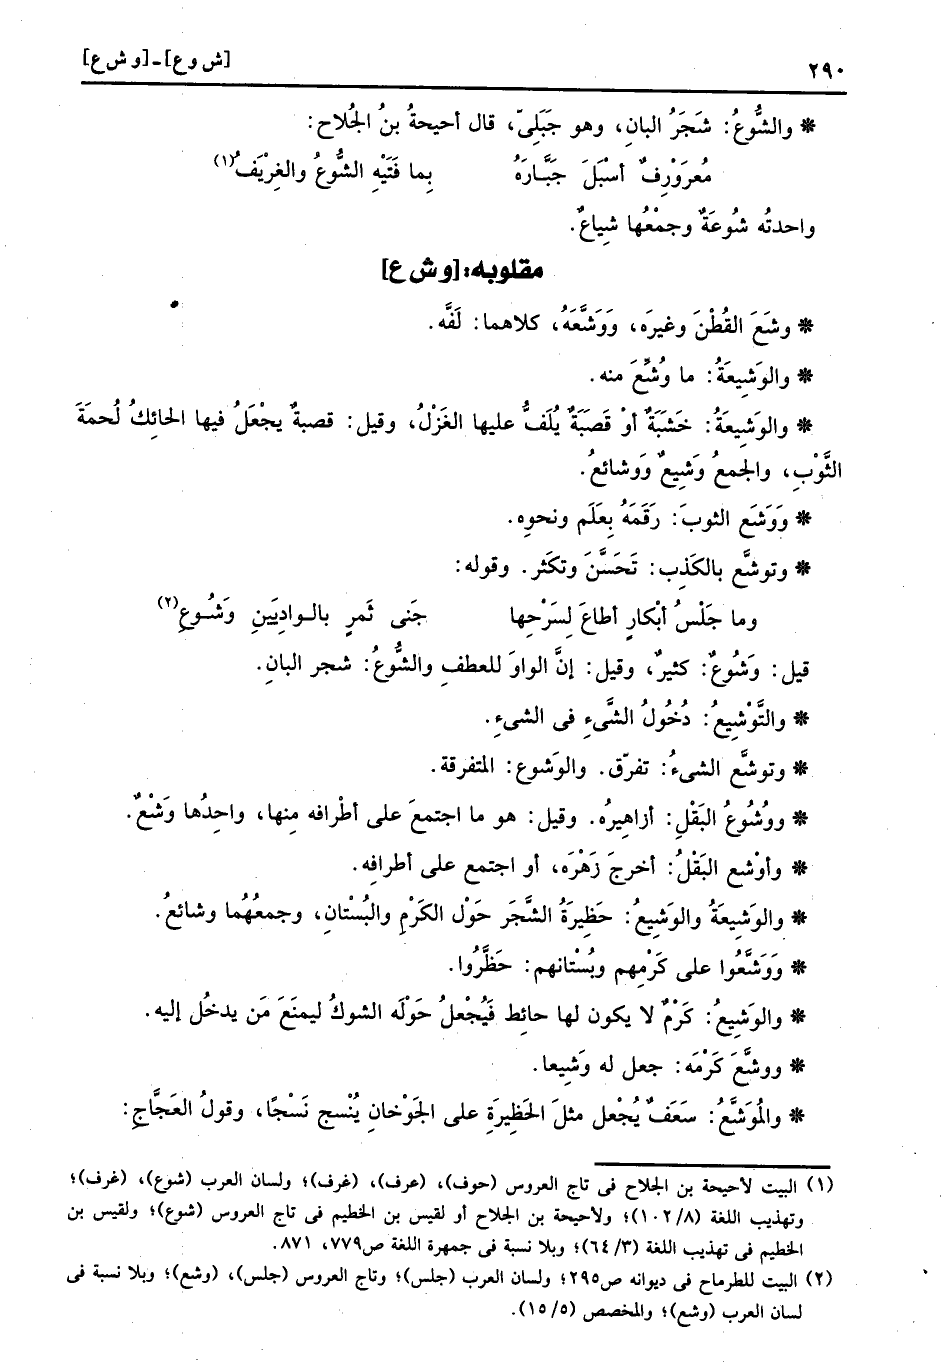 ٢٩٠ [ش و ع] ـ [و ش ع]
* والشُّوعُ: شَجَرُ البانِ، وهو جَبَلِىّ، قال أحيحةُ بنُ الجُلاح:
مُعرَوْرِفٌ أسْبَلَ جَبَّـارَهُ بِما فَتَيْهِ الشُّوعُ والغِرْيَفُ(١)
واحدتُه شُوعَةٌ وجمْعُها شياعٌ.
مقلوبه: [و ش ع]
* وشَعَ القُطْنَ وغيرَه، وَوَشَّعَهُ، كلاهما: لَفَّه.
* والوَشِيعَةُ: ما وُشِّعَ منه.
* والوَشِيعَةُ: خَشَبَةٌ أوْ قَصَبَةٌ يُلَفُّ عليها الغَزْلُ، وقيل: قصبةٌ يجْعَلُ فيها الحائكُ لُحمَةَ
الثَّوْبِ، والجمعُ وَشِيعٌ وَوشائعُ.
* وَوَشَع الثوبَ: رَقَمَهُ بِعَلَم ونحوِه.
* وتوشَّع بالكَذِب: تَحَسَّنَ وتكَثر. وقوله:
وما جَلْسُ أبْكارٍ أطاعَ لِسَرْحِها جَنى ثَمرٍ بالـوادِيَينِ وَشُـوعِ(٢)
قيل: وَشُوعٌ: كثيرٌ، وقيل: إنَّ الواوَ للعطفِ والشُّوعُ: شجر البانِ.
* والتَّوْشِيعُ: دُخُولُ الشَّىءِ فى الشىءِ.
* وتوشَّع الشىءُ: تفرّق. والوَشوع: المتفرقة.
* ووُشُوعُ البَقْلِ: أزاهيرُه. وقيل: هو ما اجتمعَ على أطْرافه مِنها، واحِدُها وَشْعٌ.
* وأوْشع البَقْلُ: أخرجَ زَهْرَه، أو اجتمع على أطرافِه.
* والوَشِيعَةُ والوَشِيعُ: حَظِيرَةُ الشَّجَر حَوْل الكَرْمِ والبُسْتان، وجمعُهُما وشائعُ.
* وَوَشَّعُوا على كَرْمِهم وبُسْتانهم: حَظَّرُوا.
* والوَشِيعُ: كَرْمٌ لا يكون لها حائِط فَيُجْعلُ حَوْلَه الشوكُ ليمنَعَ مَن يدخُل إليه.
* ووشَّعَ كَرْمَه: جعل له وَشِيعا.
* والمُوَشَّعُ: سَعَفٌ يُجْعل مثلَ الحَظِيرَةِ على الجَوْخان يُنْسج نَسْجًا، وقولُ العَجَّاجِ:
(١) البيت لأحيحة بن الجلاح فى تاج العروس (حوف)، (عرف)، (غرف)؛ ولسان العرب (شوع)، (غرف)؛
وتهذيب اللغة (٨/ ١٠٢)؛ ولأحيحة بن الجلاح أو لقيس بن الخطيم فى تاج العروس (شوع)؛ ولقيس بن
الخطيم فى تهذيب اللغة (٣/ ٦٤)؛ وبلا نسبة فى جمهرة اللغة ص٧٧٩، ٨٧١.
(٢) البيت للطرماح فى ديوانه ص٢٩٥؛ ولسان العرب (جلس)؛ وتاج العروس (جلس)، (وشع)؛ وبلا نسبة فى
لسان العرب (وشع)؛ والمخصص (٥/ ١٥).